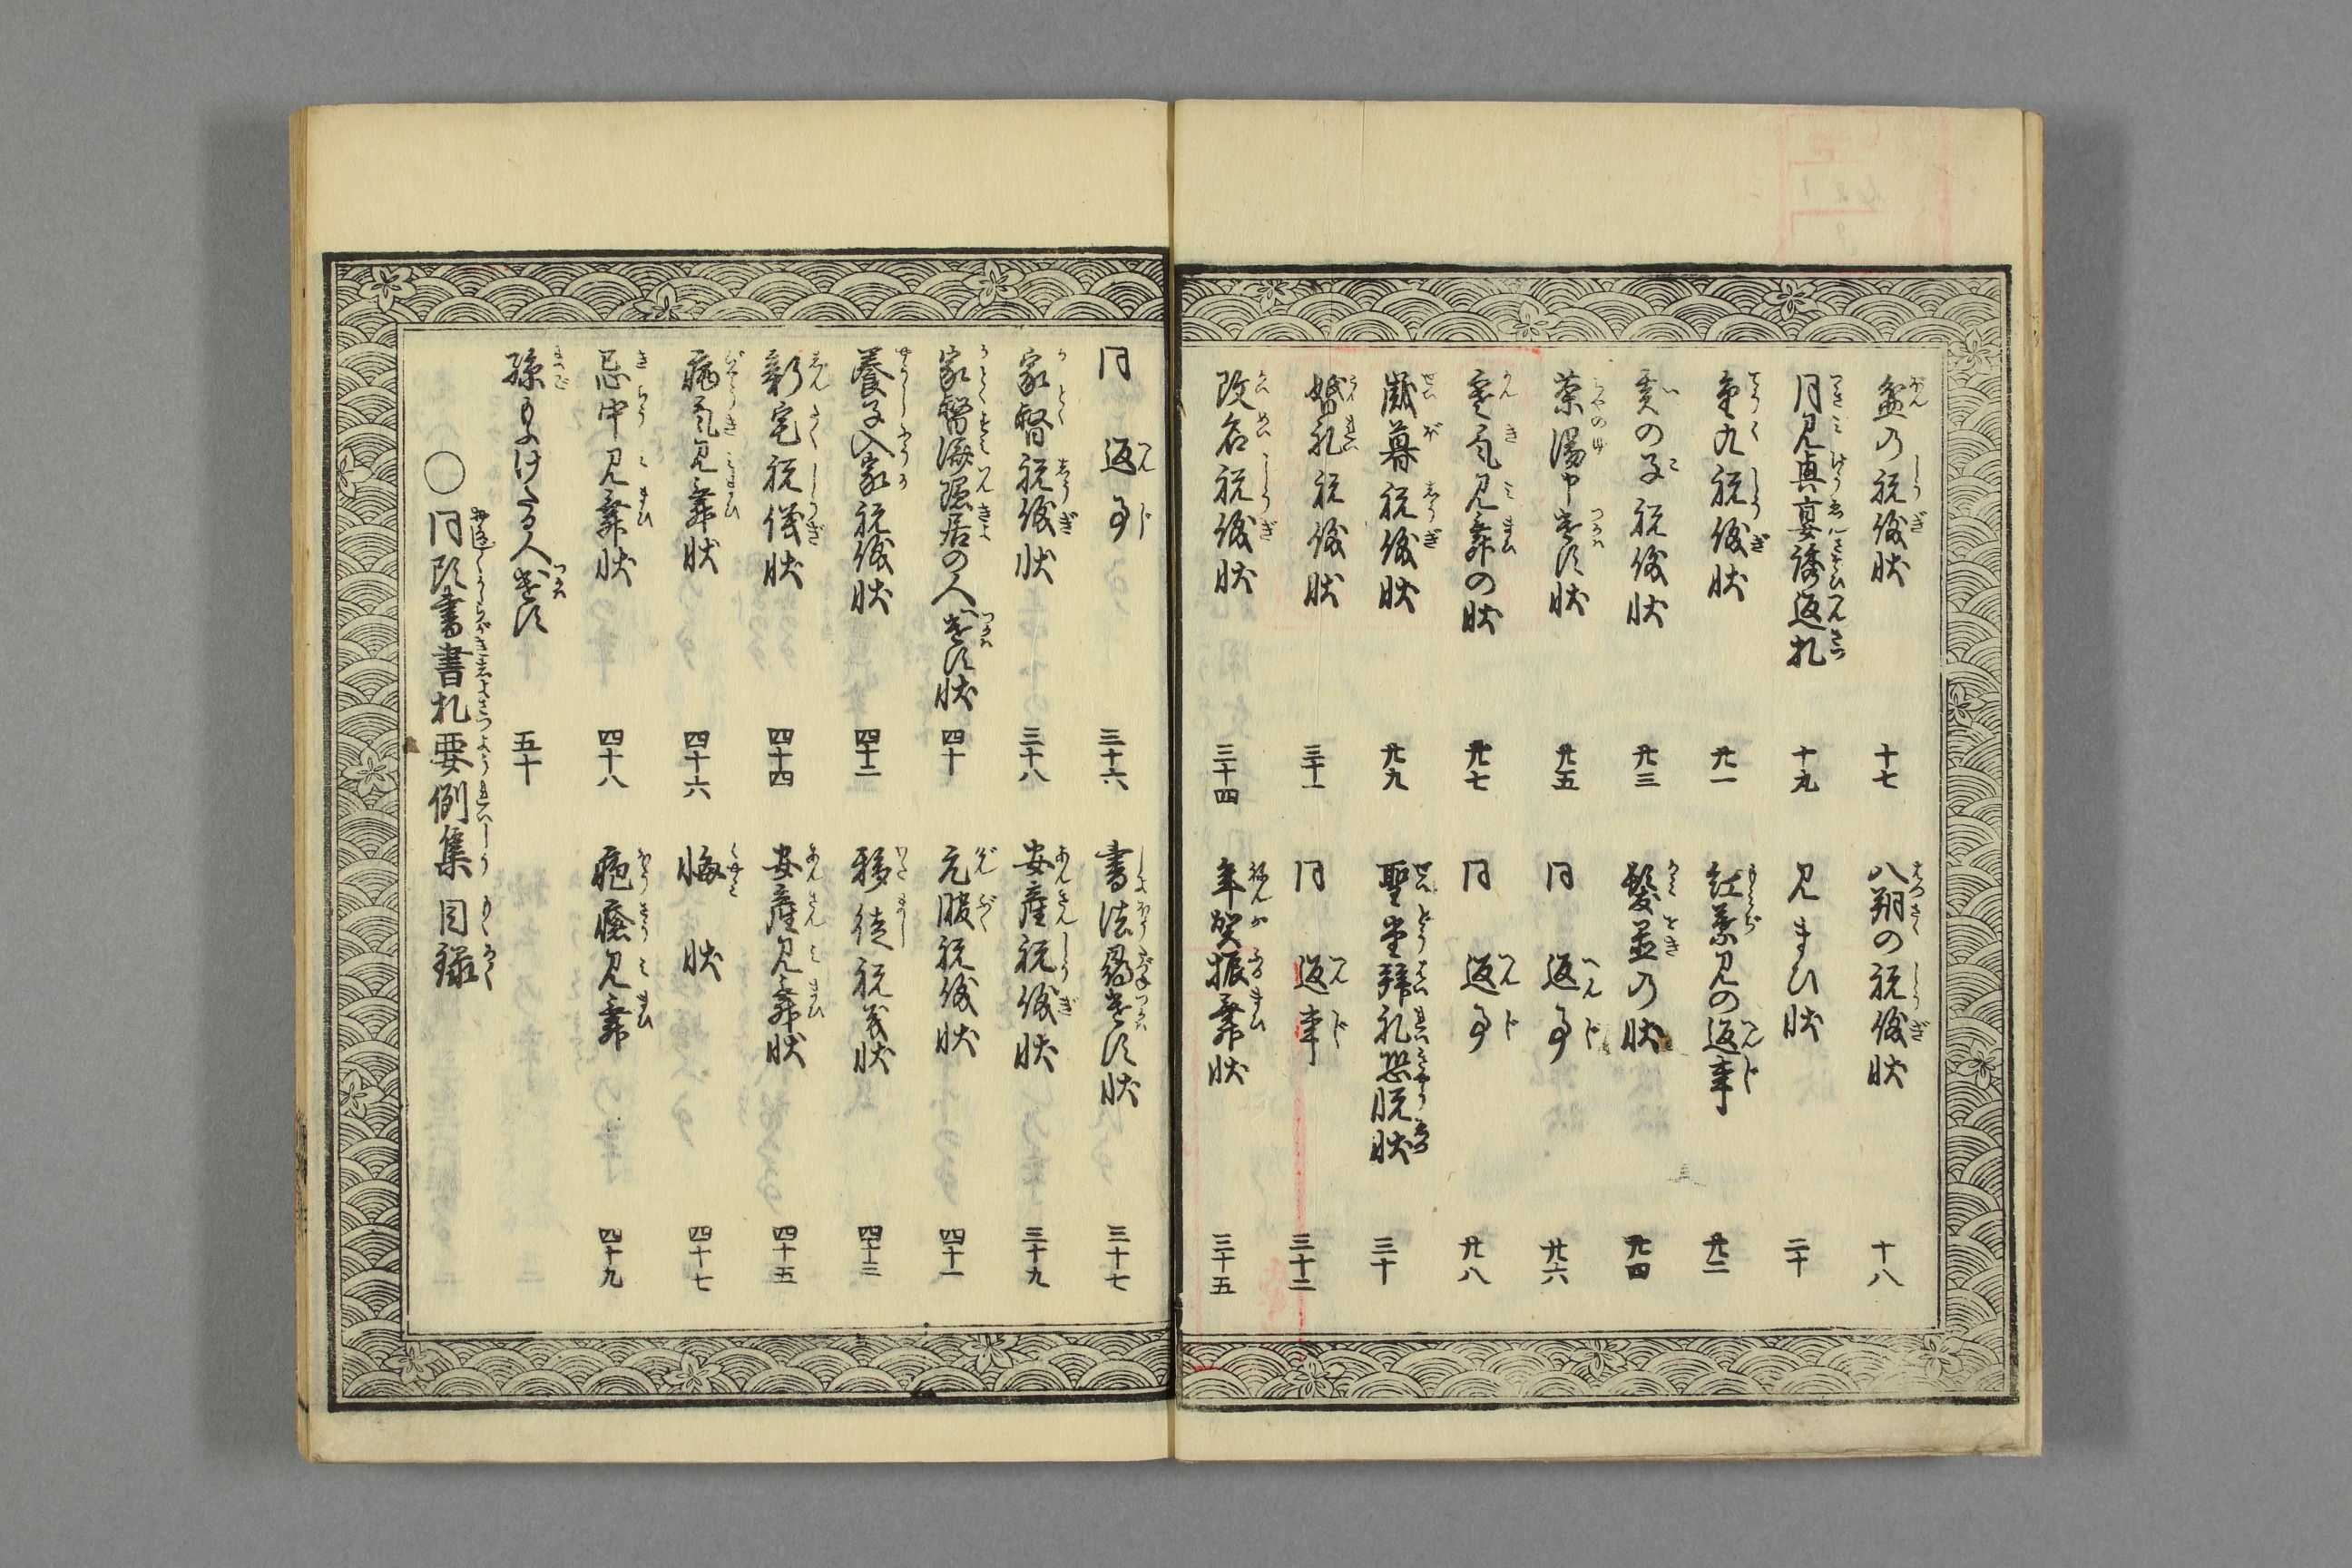 盆の祝儀状 十七
八朔の祝儀状 十八
月見宴誘返札 十九
見まひ状 二十
重九祝儀状 廿一
紅葉見の返事 廿二
亥の子祝儀状 廿三
髪置の状 廿四
茶湯中遣す状 廿五
同 返事 廿六
寒気見舞の状 廿七
同 返事 廿八
歳暮祝儀状 廿九
聖堂拝礼状 三十
婚礼祝儀状 三十一
同 返事 三十二
改名祝儀状 三十四
年賀振舞状 三十五
同 返事 三十六
書法遣す状 三十七
家督祝儀状 三十八
安産祝儀状 三十九
家督済隠居の人へ遣す状 四十
元服祝儀状 四十一
養子入家祝儀状 四十二
移徒祝義状 四十三
新宅祝儀状 四十四
安産見舞状 四十五
病気見舞状 四十六
悔状 四十七
忌中見舞状 四十八
疱瘡見舞 四十九
孫まふけたる人へ遣す 五十
○同頭書書札要例集目録